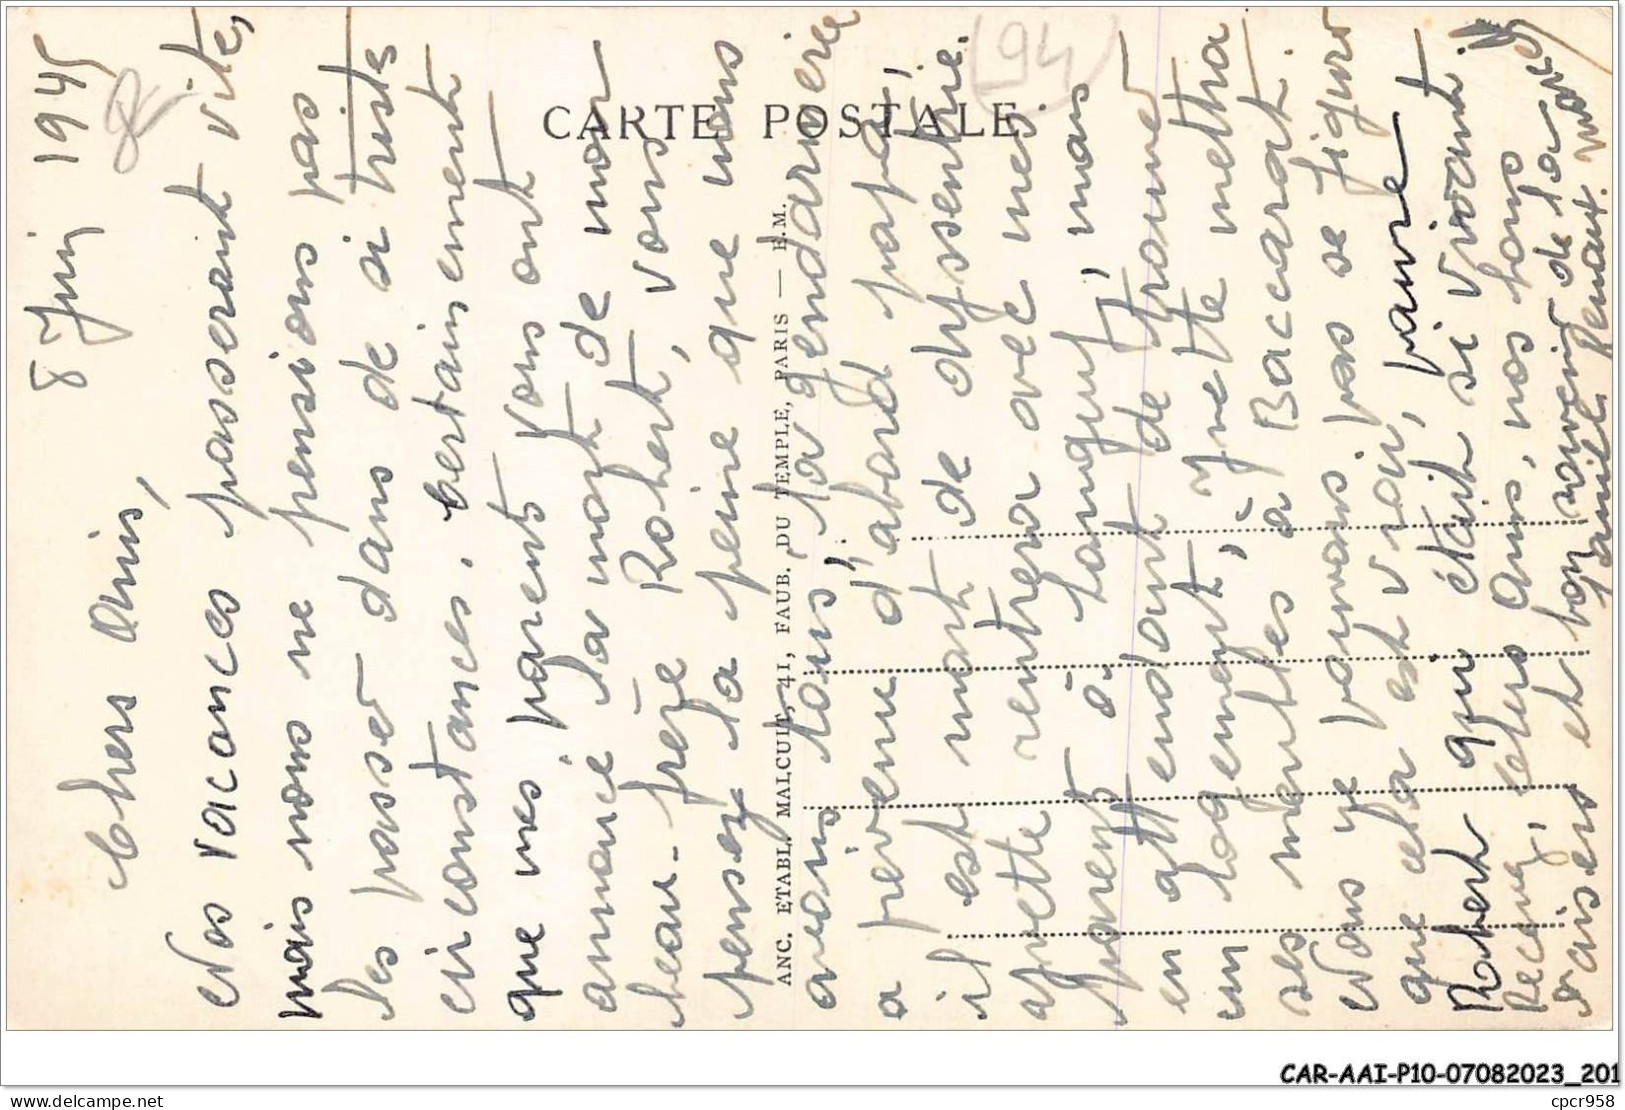 8 Juin 1945
Chers amis,
Nos vacances passeront vite,
mais nous ne pensions pas
les passer dans de si tristes
circonstances. Certainement
que mes parents vous ont
annoncé la mort de mon
beau-frère Robert, vous
pensez la peine que nous
avons tous, la gendarmerie
a prévenu d'abord papa,
il est mort de dyssentrie.
Yvette rentrera avec mes
parents à Longwy, mais
en attendant de trouver
un logement, Yvette mettra
ses meubles à Baccarat.
Nous ne pouvons pas se figurer
que cela est vrai, pauvre
Robert qui était si vivant.
Recevez, chers amis, nos bons
baisers et bon souvenir de la
famille
CARTE POSTALE
94
ANC. ETABL. MALCUIT, 41, FAUB. DU TEMPLE, PARIS — E.M.
CAR-AAI-P10-07082023_201
www.delcampe.net
cpcr958